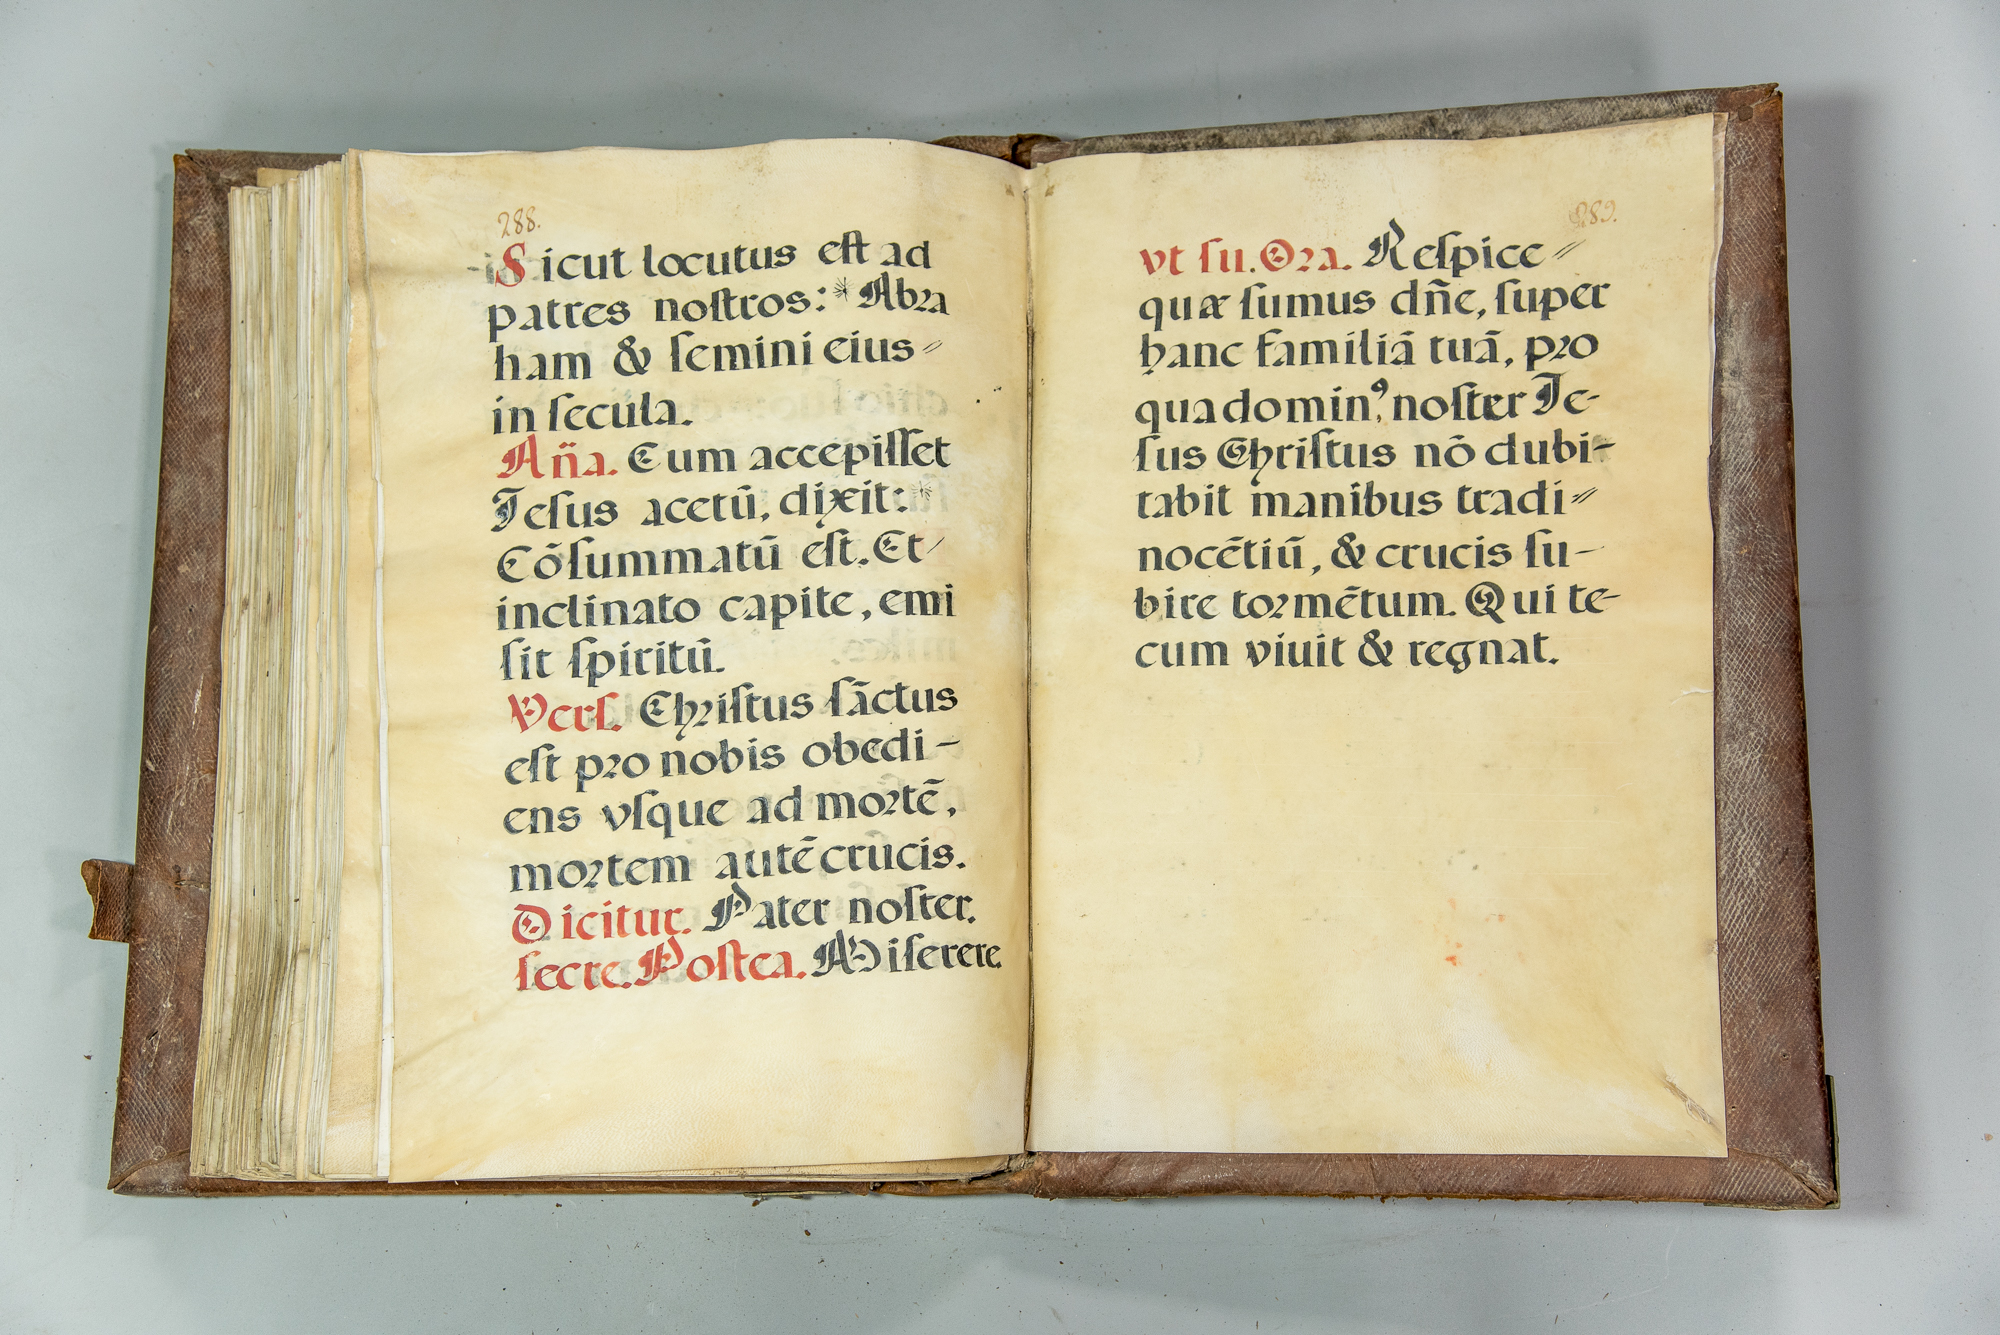 288.
Sicut locutus est ad
patres nostros: * Abra
ham & semini eius⸗
in secula.
Aña. Cum accepisset
Jesus acetū, dixit: *
Cōsummatū est. Et
inclinato capite, emi
sit spiritū.
Vers. Christus sāctus
est pro nobis obedi-
ens vsque ad mortē,
mortem autē crucis.
Dicitur. Pater noster.
secre. Postea. Miserere
289.
vt su. Ora. Respice⸗
quæ sumus dñe, super
hanc familiā tuā, pro
qua dominꝰ, noster Je-
sus Christus nō dubi-
tabit manibus tradi⸗
nocētiū, & crucis su-
bire tormētum. Qui te-
cum viuit & regnat.